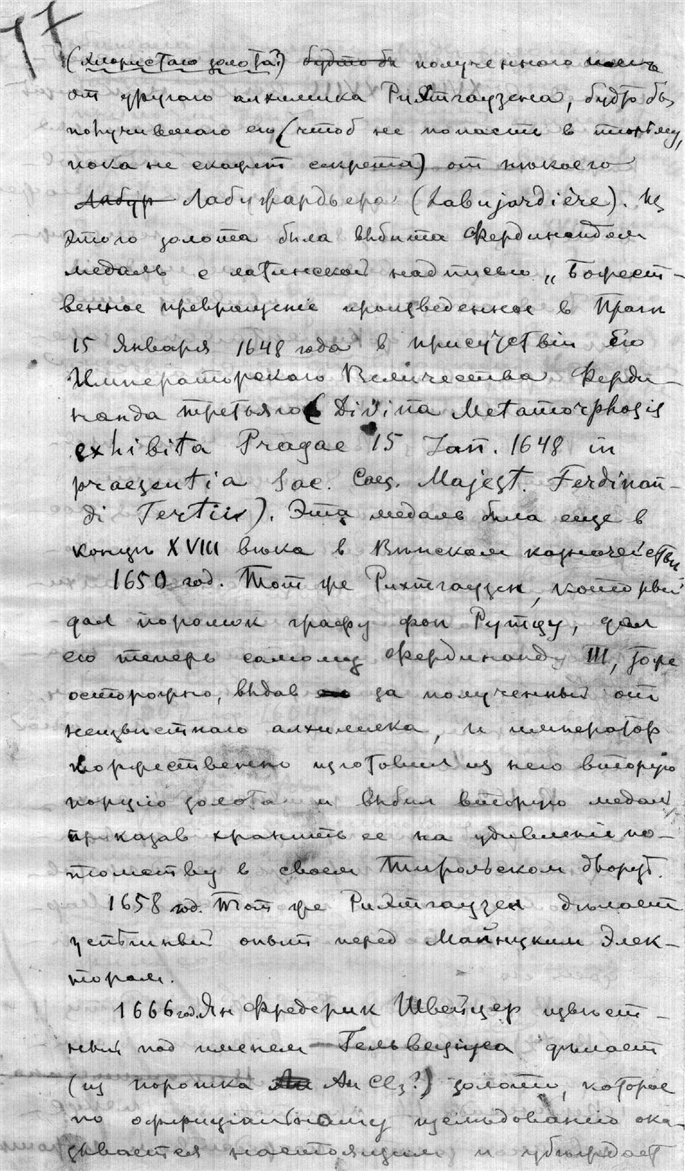 77
(хлористаго золота?) будто бы полученного
от другого алхимика Рихтгаузена, будто бы
получившаго его (чтоб не попасть в тюрьму,
пока не скажет секрета) от нѣкоего
Лабур Лабужардьера (Labujardière). Из
этого золота была выбита Фердинандом
медаль с латинской надписью „Божест-
венное превращение произведенное в Праге
15 Января 1648 года в присутствіи Его
Императорскаго Величества Ферди-
нанда третьяго (Divina Metamorphosis
exhibita Pragae 15 Jan. 1648 in
praesentia Sac. Caes. Majest. Ferdinan-
di Tertii). Эта медаль была еще в
концѣ XVIII вѣка в Вѣнском казначействѣ
1650 год. Тот же Рихтгаузен, который
дал порошок графу фон Рутцу, дал
его теперь самому Фердинанду III, тоже
осторожно, выдав за полученный от
неизвѣстнаго алхимика, и император
торжественно изготовил из него вторую
порцію золота и выбил вторую медаль
приказав хранить ее на удивленіе по-
томству в своем Тирольском дворцѣ.
1658 год. Тот же Рихтгаузен дѣлает
успѣшный опыт перед Майнцким Элек-
тором.
1666 год. Ян Фредерик Швейцер извѣст-
ный под именем Гельвеціуса дѣлает
(из порошка Au Cl3?) золото, которое
по оффиціальному изслѣдованию ока-
зывается настоящим и убѣждает